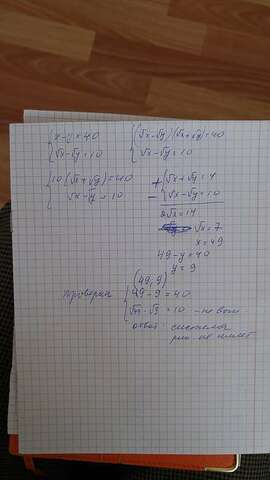 {x-y=40
√x-√y=10
{(√x-√y)(√x+√y)=40
√x-√y=10
{10(√x+√y)=40
√x-√y=10
+{√x+√y=4
-{√x-√y=10
2√x=14
√x=7
x=49
49-y=40
y=9
(49,9)
Проверка {49-9=40
√49-√9=10 - не вып
ответ: система
реш не имеет